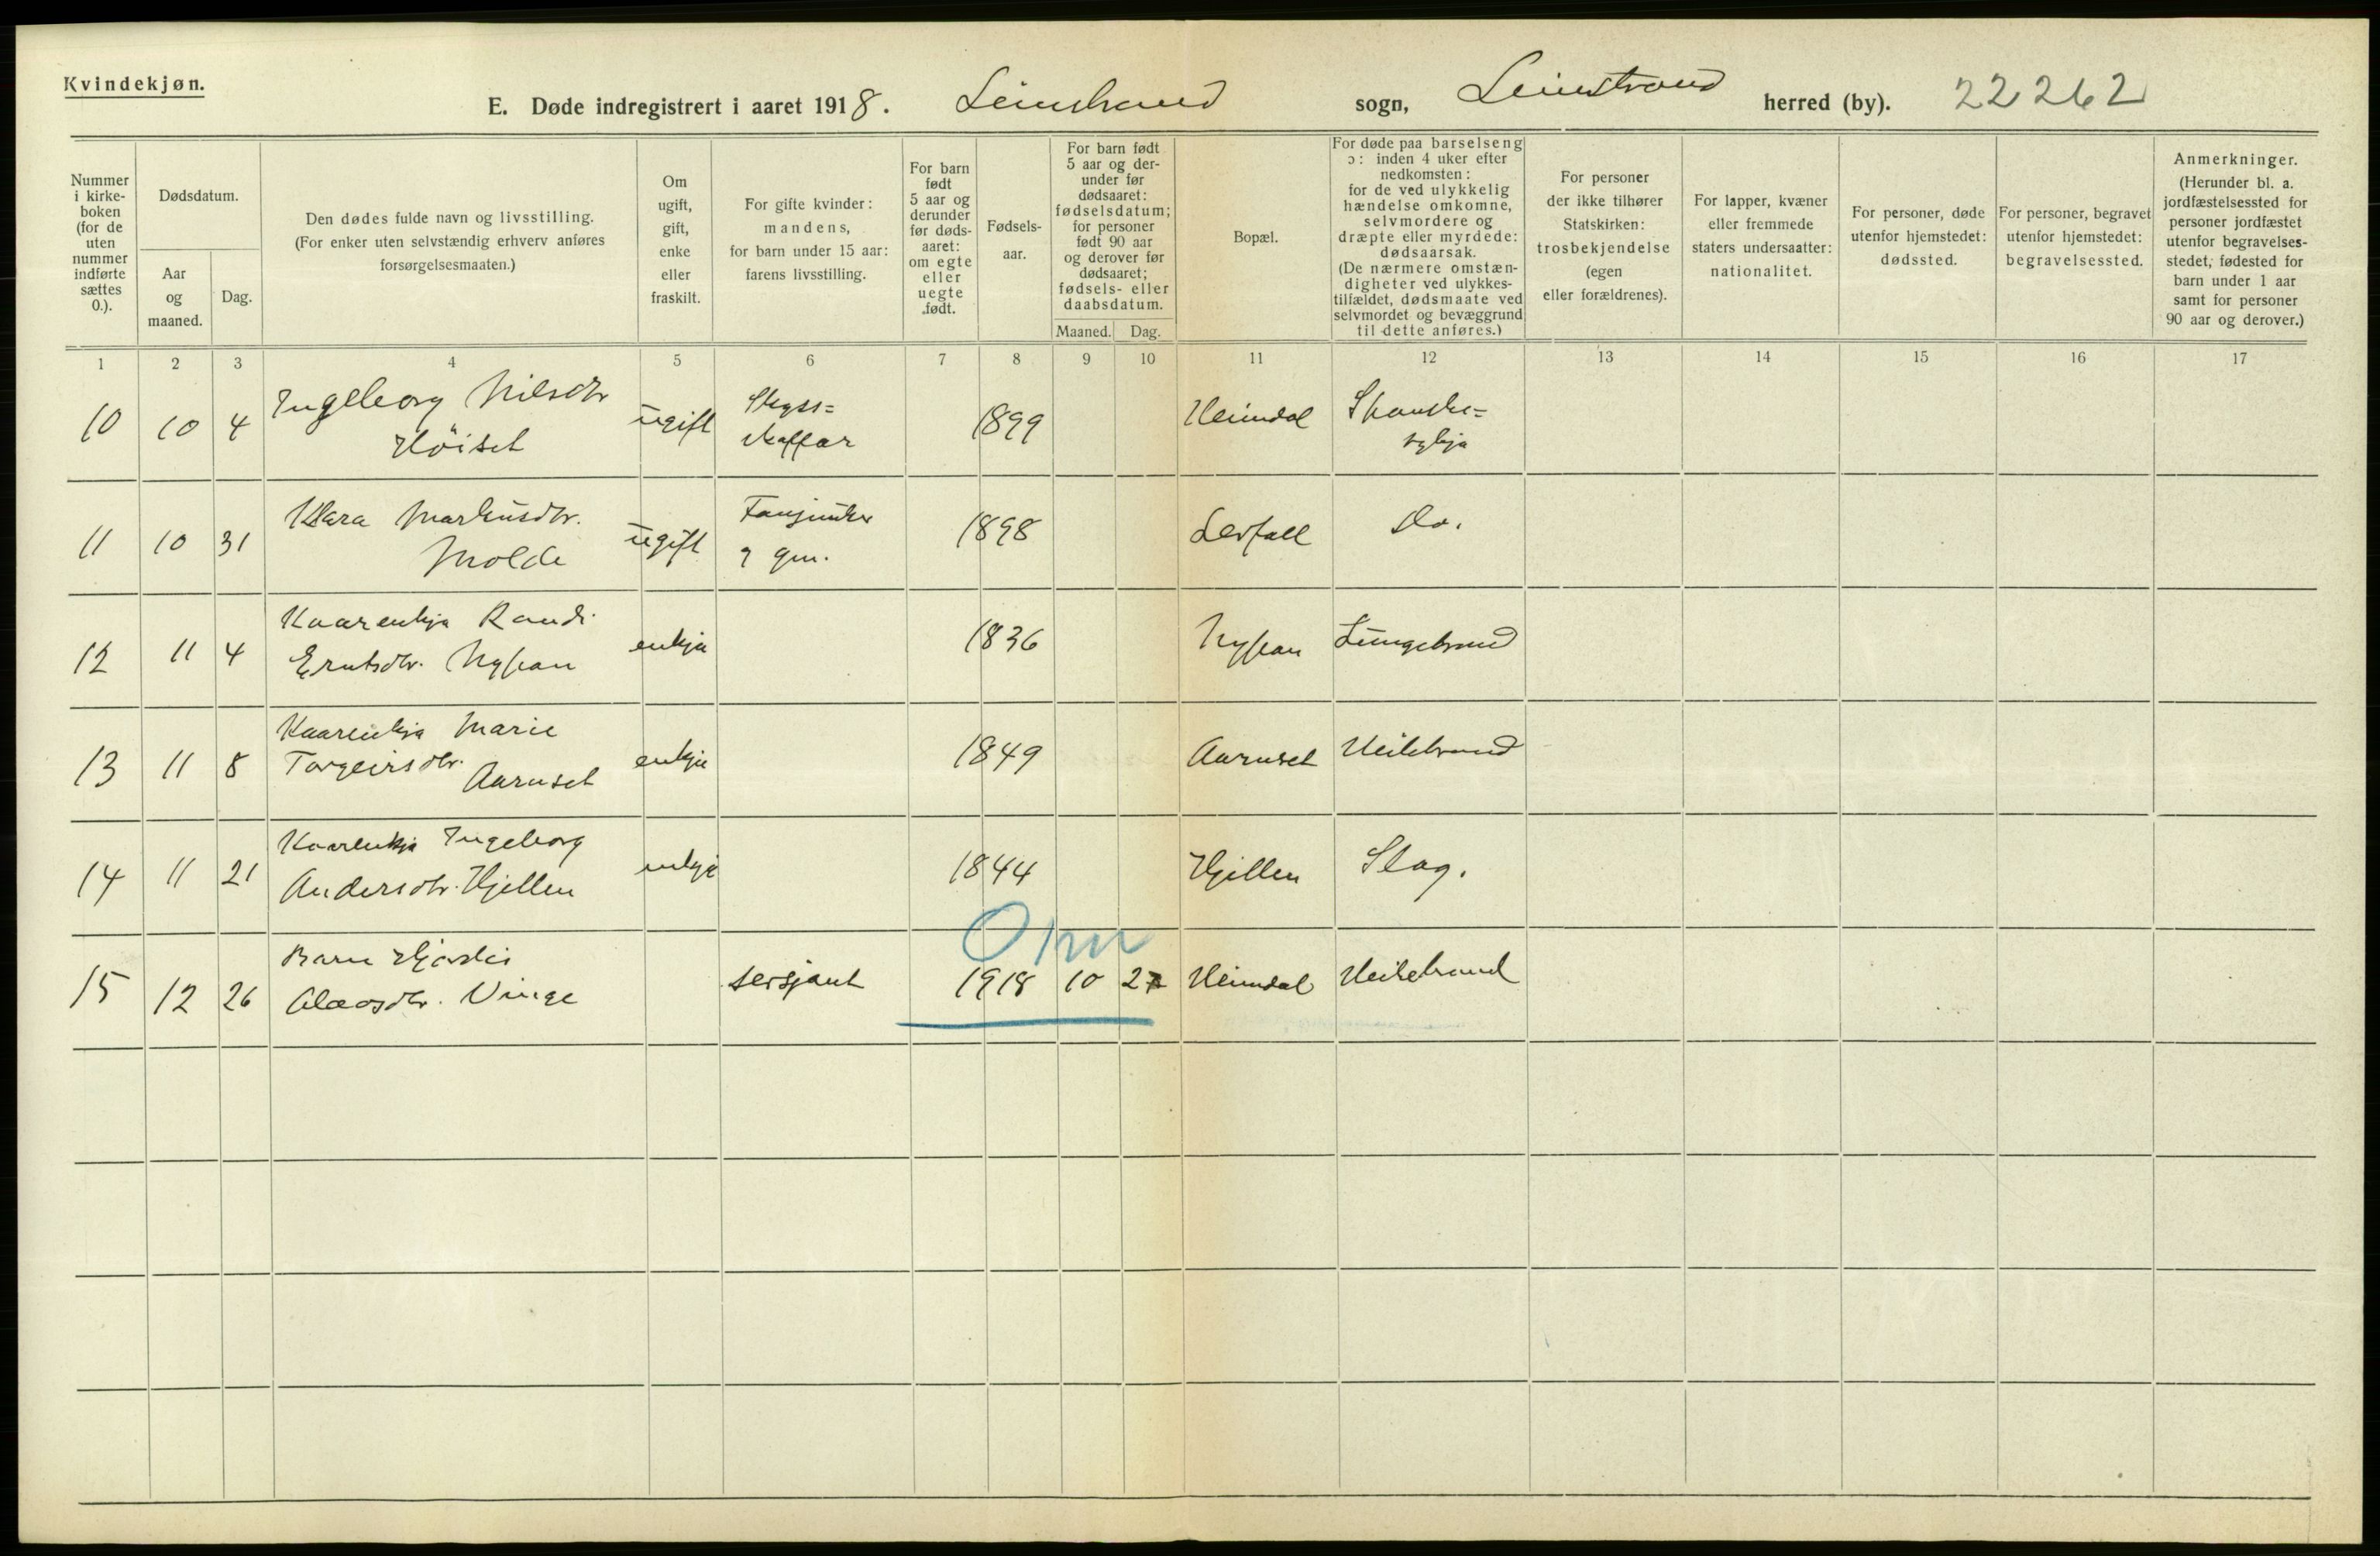 Kvindekjøn.
E. Døde indregistrert i aaret 1918. Leinstrand sogn, Leinstrand herred (by). 22262
Nummer i kirke-boken (for de uten nummer indførte sættes 0.).
Dødsdatum.
Aar og maaned.
Dag.
Den dødes fulde navn og livsstilling.
(For enker uten selvstændig erhverv anføres
forsørgelsesmaaten.)
Om ugift, gift, enke eller fraskilt.
For gifte kvinder: mandens, for barn under 15 aar: farens livsstilling.
For barn født 5 aar og derunder før døds-aaret: om egte eller uegte født.
Fødsels-aar.
For barn født 5 aar og der-under før dødsaaret: fødselsdatum; for personer født 90 aar og derover før dødsaaret; fødsels- eller daabsdatum.
Maaned. Dag.
Bopæl.
For døde paa barselseng ɔ: inden 4 uker efter nedkomsten: for de ved ulykkelig hændelse omkomne, selvmordere og dræpte eller myrdede: dødsaarsak. (De nærmere omstæn-digheter ved ulykkes-tilfældet, dødsmaate ved selvmordet og bevæggrund til dette anføres.)
For personer der ikke tilhører Statskirken: trosbekjendelse (egen eller forældrenes).
For lapper, kvæner eller fremmede staters undersaatter: nationalitet.
For personer, døde utenfor hjemstedet: dødssted.
For personer, begravet utenfor hjemstedet: begravelsessted.
Anmerkninger. (Herunder bl. a. jordfæstelsessted for personer jordfæstet utenfor begravelses-stedet; fødested for barn under 1 aar samt for personer 90 aar og derover.)
1 2 3 4 5 6 7 8 9 10 11 12 13 14 15 16 17
10 10 4 Ingeborg Nilsdtr ugift Skyss= 1899 Heimdal Spanske=
Höiset skaffar sykja
11 10 31 Klara Markusdtr. ugift Fanejunker 1898 Lerfall do.
Molde gm.
12 11 4 Kaarenkja Randi enkja 1836 Nypan Lungebrand
Erntsdtr. Nypan
13 11 8 Kaarenkja Marie enkja 1849 Aarnset Heilebrand
Torgeirsdtr. Aarnset
14 11 21 Kaarenkja Ingeborg enkja 1844 Hjillen Slag.
Andersdtr. Hjellen
15 12 26 Barn Hjørdis sersjant 1918 10 27 Heimdal Heilebrand
Olaosdtr. Vinge